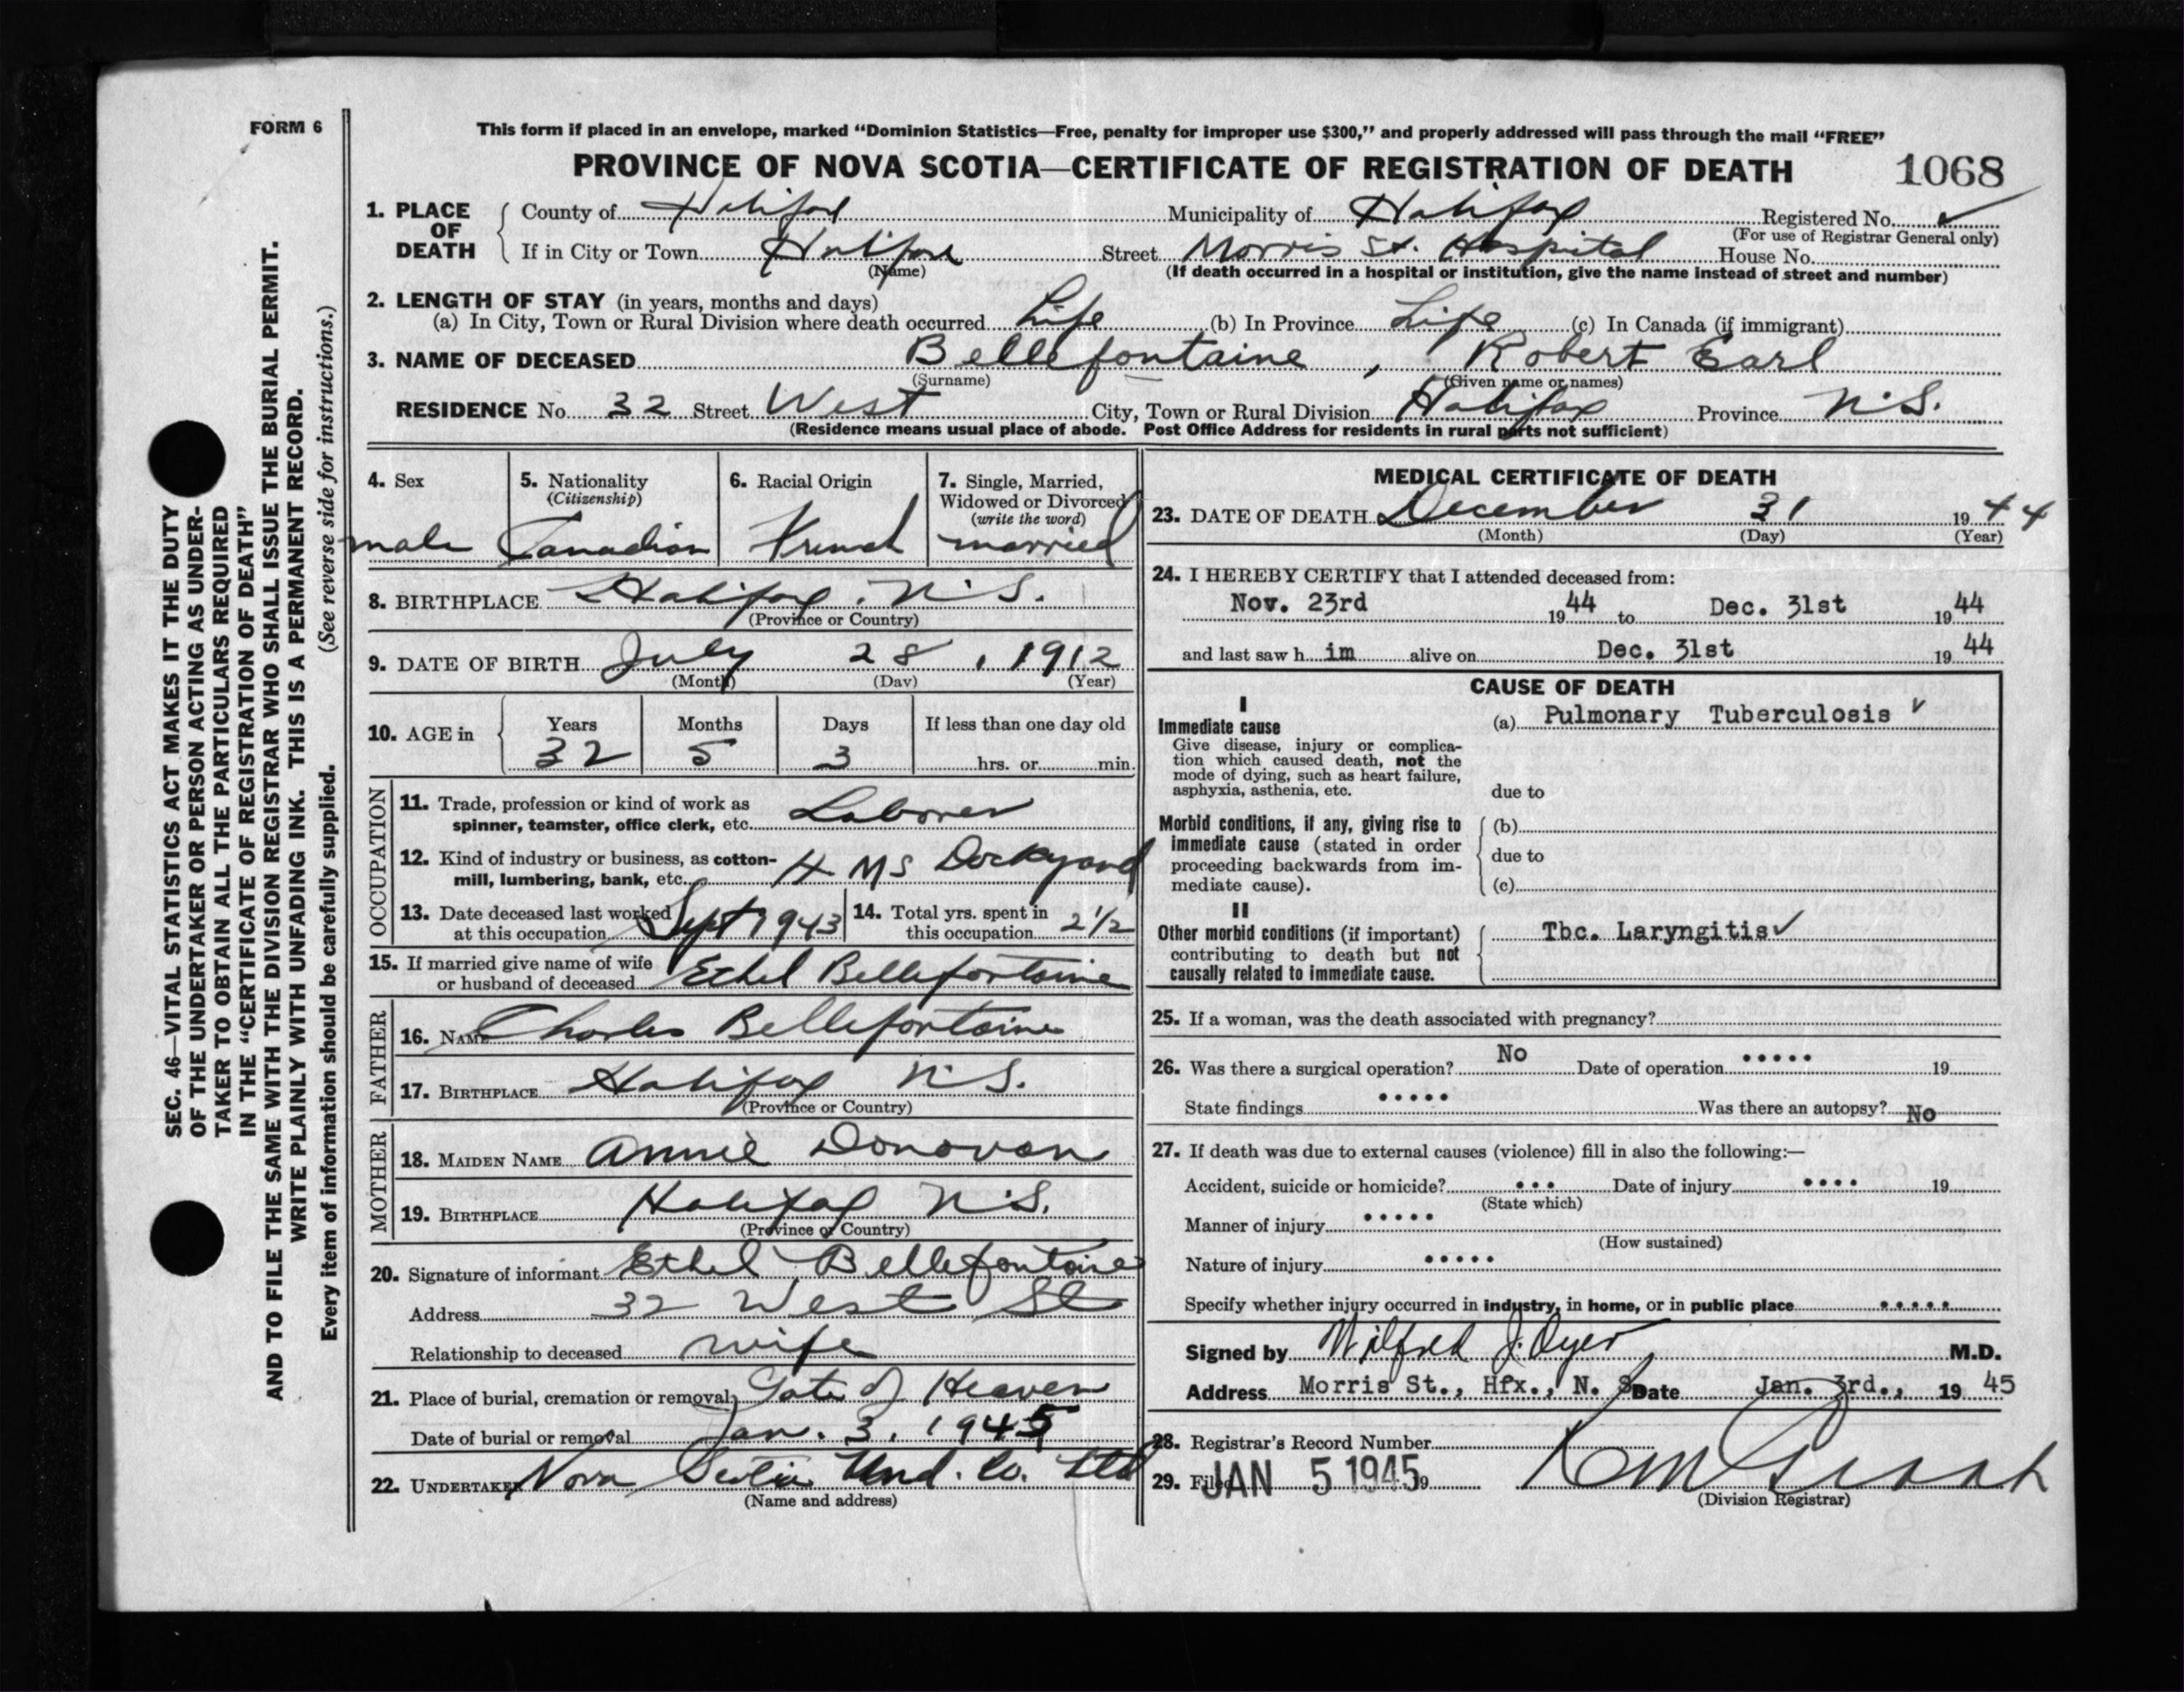 FORM 6
This form if placed in an envelope, marked “Dominion Statistics—Free, penalty for improper use $300,” and properly addressed will pass through the mail “FREE”
PROVINCE OF NOVA SCOTIA—CERTIFICATE OF REGISTRATION OF DEATH 1068
1. PLACE OF DEATH County of Halifax Municipality of Halifax Registered No.
(For use of Registrar General only)
If in City or Town Halifax Street Morris St. Hospital House No.
(Name) (If death occurred in a hospital or institution, give the name instead of street and number)
2. LENGTH OF STAY (in years, months and days)
(a) In City, Town or Rural Division where death occurred Life (b) In Province Life (c) In Canada (if immigrant)
3. NAME OF DECEASED Bellefontaine, Robert Earl
(Surname) (Given name or names)
RESIDENCE No. 32 Street West City, Town or Rural Division Halifax Province N.S.
(Residence means usual place of abode. Post Office Address for residents in rural parts not sufficient)
4. Sex 5. Nationality (Citizenship) 6. Racial Origin 7. Single, Married, Widowed or Divorced (write the word)
male Canadian French married
8. BIRTHPLACE Halifax, N.S.
(Province or Country)
9. DATE OF BIRTH July 28, 1912
(Month) (Day) (Year)
10. AGE in Years Months Days If less than one day old
32 5 3 hrs. or min.
OCCUPATION
11. Trade, profession or kind of work as
spinner, teamster, office clerk, etc. Laborer
12. Kind of industry or business, as cotton-
mill, lumbering, bank, etc. H M S Dockyard
13. Date deceased last worked
at this occupation Sept 1943
14. Total yrs. spent in
this occupation 2 1/2
15. If married give name of wife
or husband of deceased Ethel Bellefontaine
FATHER
16. NAME Charles Bellefontaine
17. BIRTHPLACE Halifax N.S.
(Province or Country)
MOTHER
18. MAIDEN NAME Annie Donovan
19. BIRTHPLACE Halifax N.S.
(Province or Country)
20. Signature of informant Ethel Bellefontaine
Address 32 West St
Relationship to deceased wife
21. Place of burial, cremation or removal Gate of Heaven
Date of burial or removal Jan. 3, 1945
22. UNDERTAKER Nova Scotia Und. Co. Ltd
(Name and address)
MEDICAL CERTIFICATE OF DEATH
23. DATE OF DEATH December 31 1944
(Month) (Day) (Year)
24. I HEREBY CERTIFY that I attended deceased from:
Nov. 23rd 19 44 to Dec. 31st 19 44
and last saw h im alive on Dec. 31st 19 44
CAUSE OF DEATH
I
Immediate cause (a) Pulmonary Tuberculosis
Give disease, injury or complica-
tion which caused death, not the
mode of dying, such as heart failure,
asphyxia, asthenia, etc. due to
Morbid conditions, if any, giving rise to (b)
immediate cause (stated in order
proceeding backwards from im- due to
mediate cause). (c)
II
Other morbid conditions (if important) Tbc. Laryngitis
contributing to death but not
causally related to immediate cause.
25. If a woman, was the death associated with pregnancy?
26. Was there a surgical operation? No Date of operation ..... 19
State findings ..... Was there an autopsy? No
27. If death was due to external causes (violence) fill in also the following:—
Accident, suicide or homicide? ... Date of injury .... 19
(State which)
Manner of injury .....
(How sustained)
Nature of injury .....
Specify whether injury occurred in industry, in home, or in public place .....
Signed by Wilfred J. Dyer M.D.
Address Morris St., Hfx., N. S. Date Jan. 3rd., 19 45
28. Registrar's Record Number
29. Filed JAN 5 1945 19
(Division Registrar)
SEC. 46—VITAL STATISTICS ACT MAKES IT THE DUTY
OF THE UNDERTAKER OR PERSON ACTING AS UNDER-
TAKER TO OBTAIN ALL THE PARTICULARS REQUIRED
IN THE “CERTIFICATE OF REGISTRATION OF DEATH”
AND TO FILE THE SAME WITH THE DIVISION REGISTRAR WHO SHALL ISSUE THE BURIAL PERMIT.
WRITE PLAINLY WITH UNFADING INK. THIS IS A PERMANENT RECORD.
Every item of information should be carefully supplied. (See reverse side for instructions.)